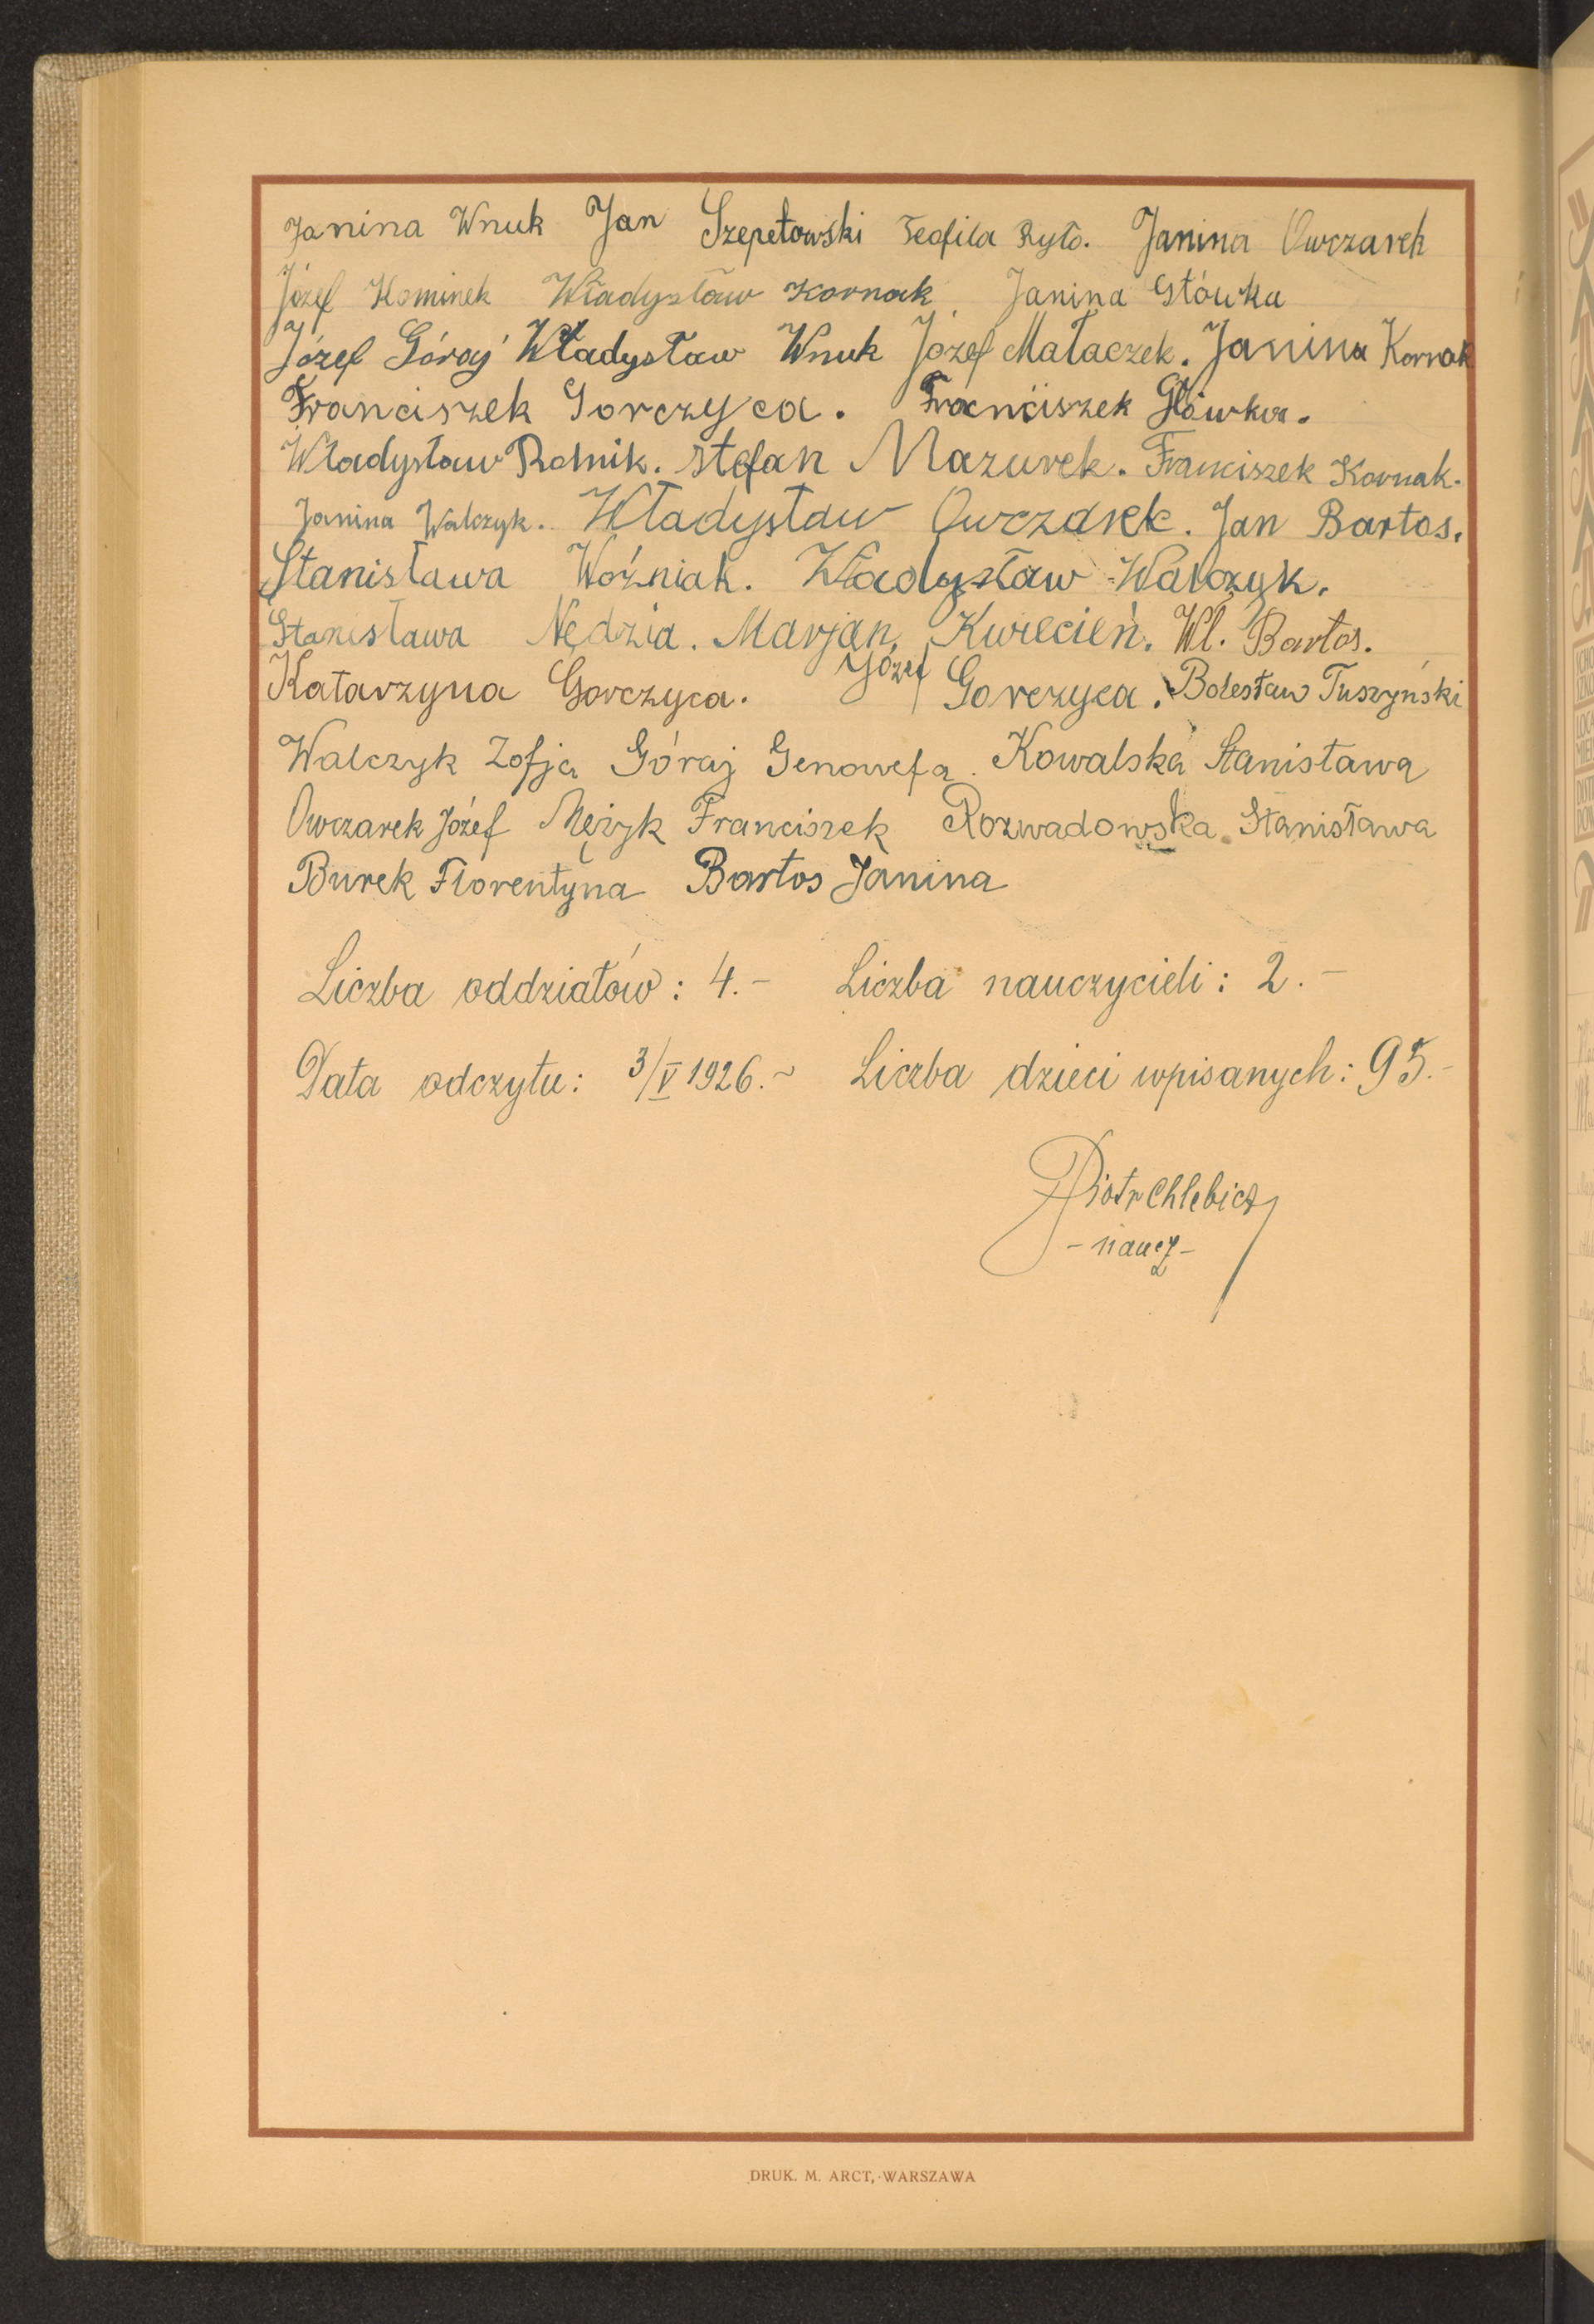 Janina Wnuk Jan Szepetowski Teofila Ryło. Janina Owczarek
Józef Kominek Władysław Kornak Janina Główka
Józef Góraj Władysław Wnuk Józef Małaczek. Janina Kornak
Franciszek Gorczyca. Franciszek Główka.
Władysław Rolnik. Stefan Mazurek. Franciszek Kornak.
Janina Walczyk. Władysław Owczarek. Jan Bartos.
Stanisława Woźniak. Władysław Walczyk.
Stanisława Nędzia. Marjan Kwiecień. Wł. Bartos.
Katarzyna Gorczyca. Józef Gorczyca. Bolesław Tuszyński
Walczyk Zofja Góraj Genowefa. Kowalska Stanisława
Owczarek Józef Mężyk Franciszek Rozwadowska Stanisława
Burek Florentyna Bartos Janina
Liczba oddziałów: 4.- Liczba nauczycieli: 2.-
Data odczytu: 3/V 1926.~ Liczba dzieci wpisanych: 95.-
Piotr Chlebicz
- naucz -
DRUK. M. ARCT, WARSZAWA